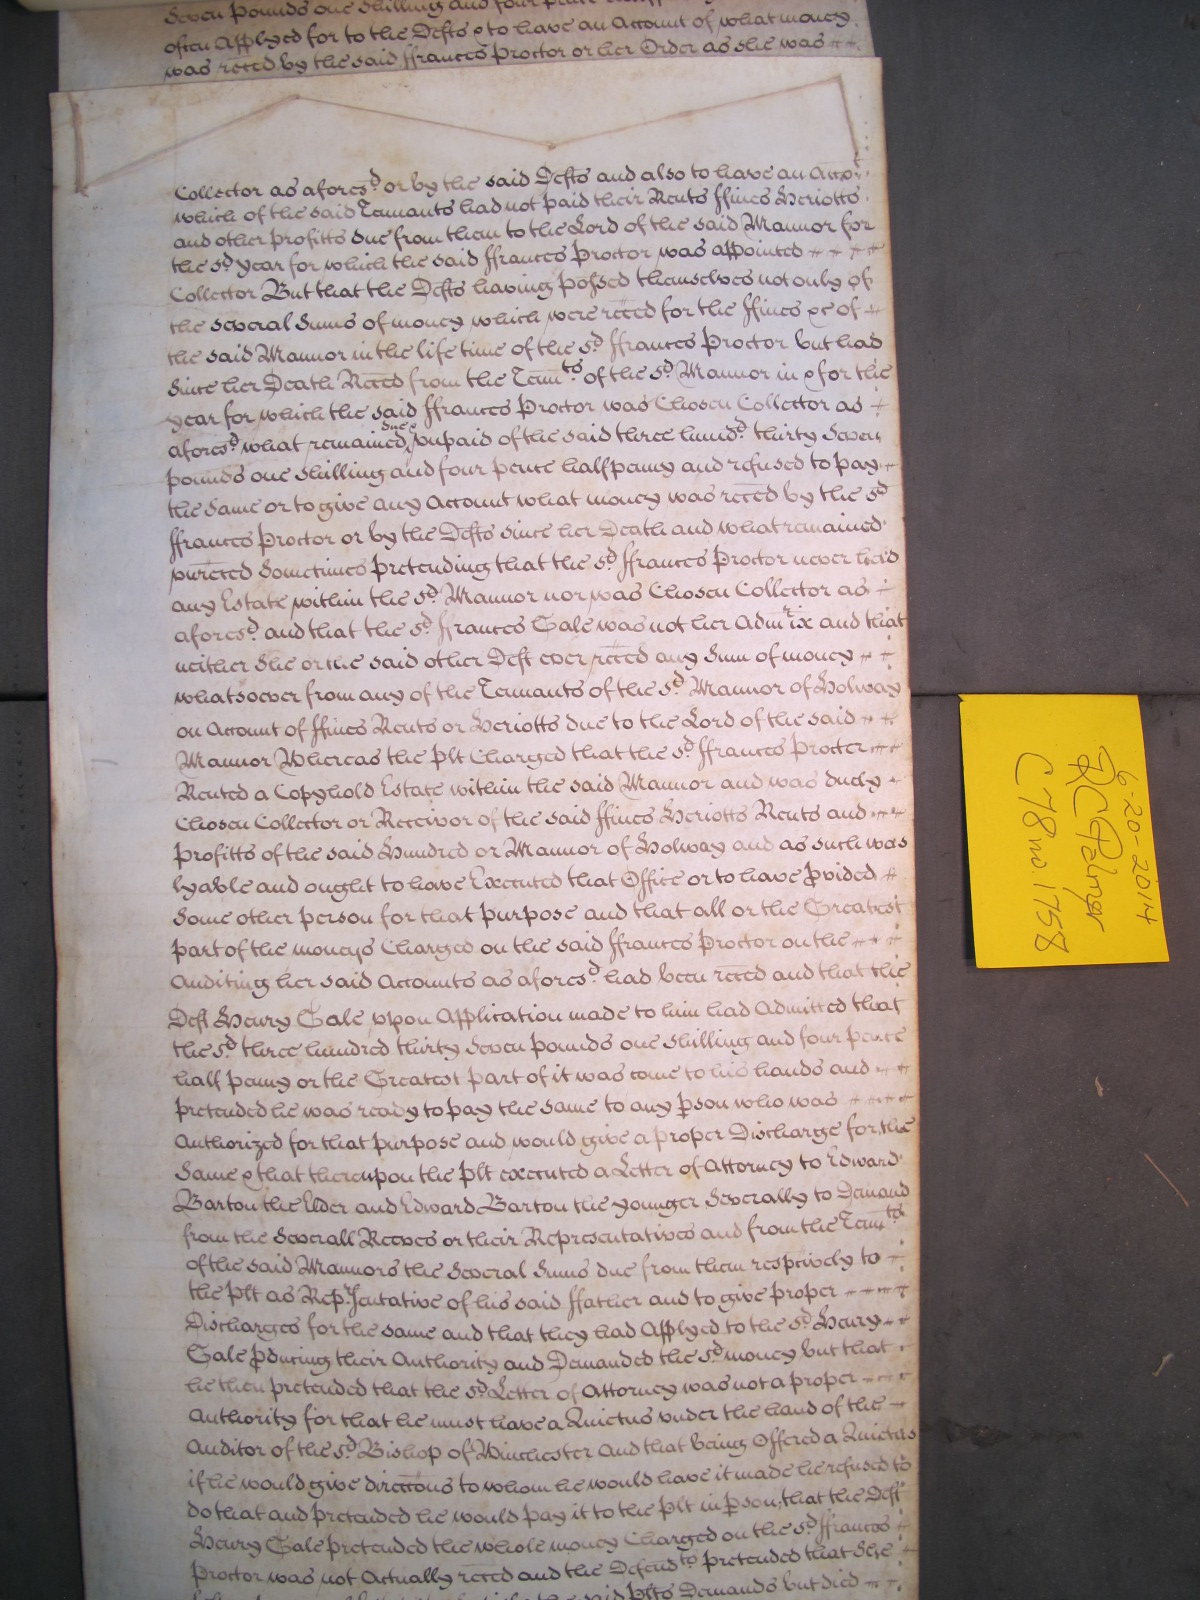 Seven Pounds one Shilling and four pence
often Applyed for to the Defts & to have an Account of what money
was reced by the said ffrances Proctor or her Order as she was
Collector as aforesd or by the said Defts and also to have an Accot
which of the said Tennants had not paid their Rents ffines Heriotts
and other profitts due from them to the Lord of the said Mannor for
the sd year for which the said ffrances Proctor was appointed
Collector But that the Defts having possed themselves not only of
the several Sums of money which were reced for the ffines &c of
the said Mannor in the life time of the sd ffrances Proctor but had
Since her Death Reced from the Tennts of the sd Mannor in & for the
year for which the said ffrances Proctor was Chosen Collector as
aforesd what remained due & unpaid of the said three hundd thirty Seven
pounds one Shilling and four pence halfpenny and refused to pay
the Same or to give any Account what money was reced by the sd
ffrances Proctor or by the Defts since her Death and what remained
unreced Sometimes pretending that the sd ffrances Proctor never held
any Estate within the sd Mannor nor was Chosen Collector as
aforesd and that the sd ffrances Gale was not her Admrix and that
neither She or the said other Deft ever reced any Sum of money
whatsoever from any of the Tennants of the sd Mannor of Holway
on Account of ffines Rents or Heriotts due to the Lord of the said
Mannor Whereas the Plt Charged that the sd ffrances Procter
Rented a Copyhold Estate within the said Mannor and was duely
Chosen Collector or Receivor of the said ffines Heriotts Rents and
Profitts of the said Hundred or Mannor of Holway and as such was
lyable and ought to have Executed that Office or to have pvided
Some other person for that purpose and that all or the Greatest
part of the moneys Charged on the said ffrances Proctor on the
Auditing her said Accounts as aforesd had been reced and that the
Deft Henry Gale upon Application made to him had Admitted that
the sd three hundred thirty Seven pounds one Shilling and four pence
half penny or the Greatest part of it was come to his hands and
pretended he was ready to pay the same to any pson who was
Authorized for that purpose and would give a proper Discharge for the
Same & that thereupon the Plt executed a Letter of Attorney to Edward
Barton the Elder and Edward Barton the younger Severally to Demand
from the Severall Reeves or their Representatives and from the Tennts
of the said Mannors the Several Sums due from them respively to
the Plt as Repsentative of his said ffather and to give proper
Discharges for the same and that they had Applyed to the sd Henry
Gale pducing their Authority and Demanded the sd money but that
he then pretended that the sd Letter of Attorney was not a proper
Authority for that he must have a Quietus under the hand of the
Auditor of the sd Bishop of Winchester And that being Offered a Quietus
if he would give directions to whom he would have it made he refused to
do that and pretended he would pay it to the Plt in pson, that the Deft
Henry Gale pretended the whole money Charged on the sd ffrances
Proctor was not Actually reced and the Defendt pretended that She
said Plts Demands but died
6-20-2014
RCPalmer
C78 no. 1758